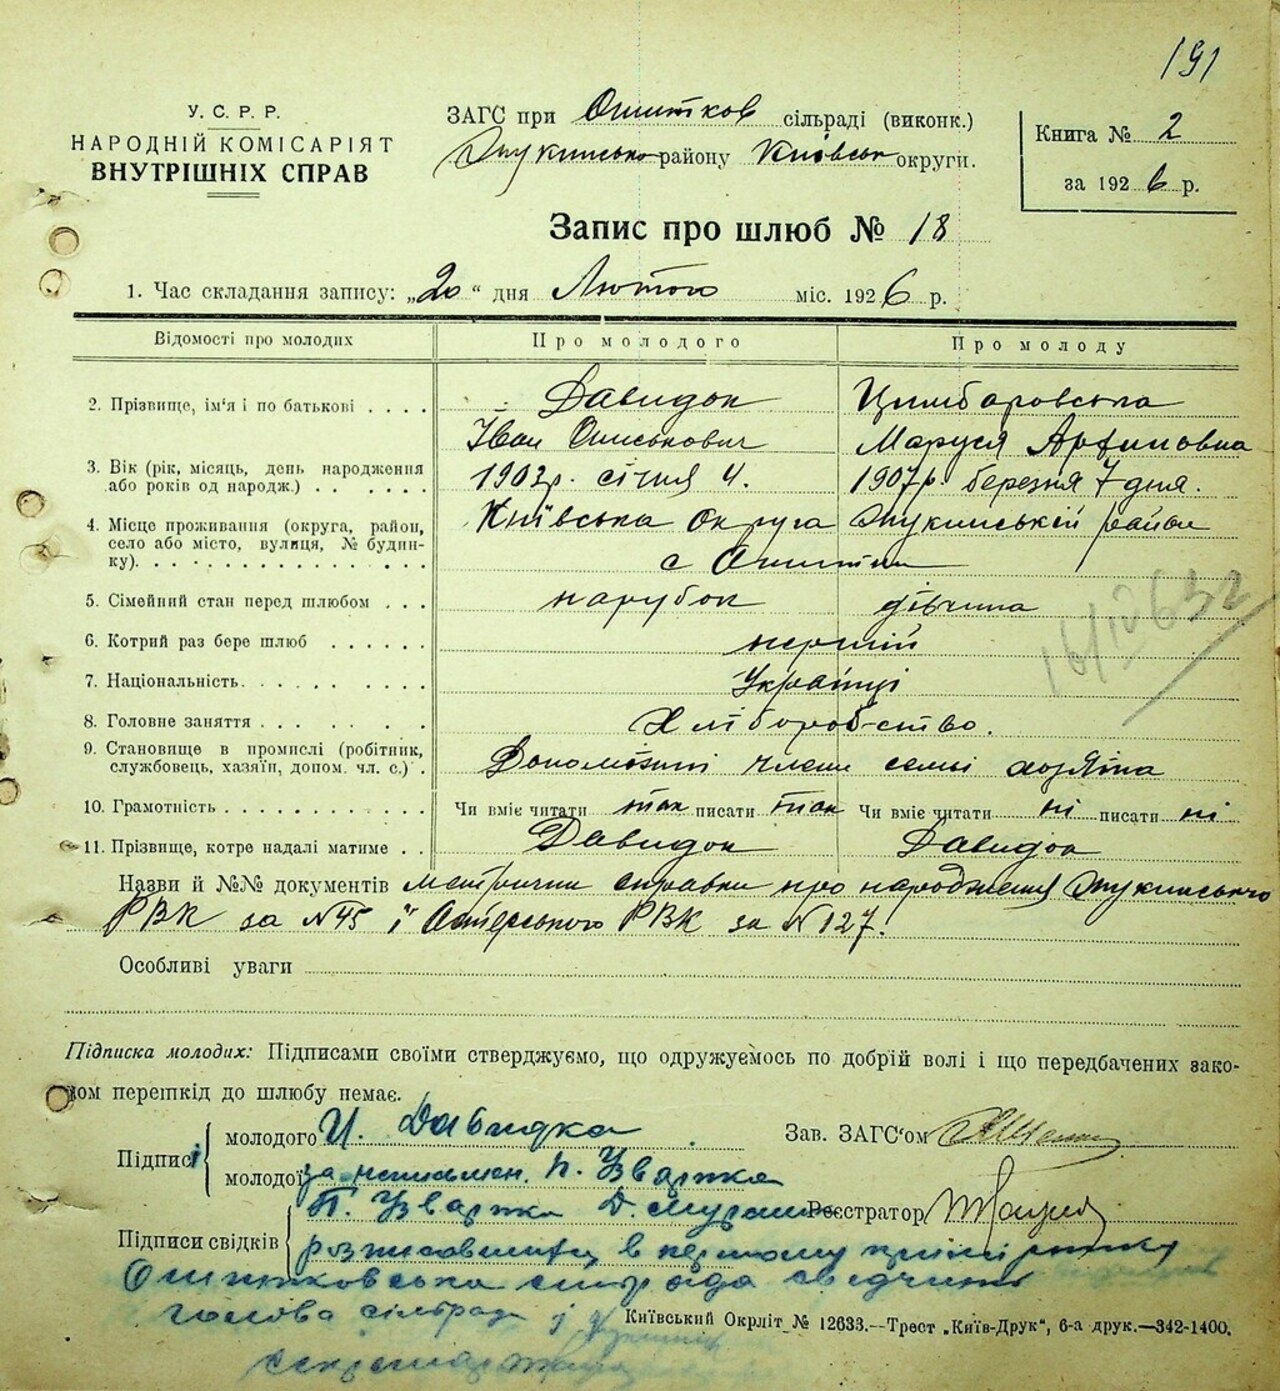 191
У. С. Р. Р.
НАРОДНІЙ КОМІСАРІЯТ
ВНУТРІШНІХ СПРАВ
ЗАГС при Ошитков сільраді (виконк.)
району Київськ округи.
Книга № 2
за 1926 р.
Запис про шлюб № 18
1. Час складання запису: „20“ дня Лютого міс. 1926 р.
Відомості про молодих
Про молодого
Про молоду
2. Прізвище, ім'я і по батькові . . . .
Давидок
Іван Ониськович
Цимбаровська
Маруся Архиповна
3. Вік (рік, місяць, день народження
або років од народж.) . . . . . .
1902р. січня 4.
1907р. березня 7 дня.
4. Місце проживання (округа, район,
село або місто, вулиця, № будин-
ку). . . . . . . . . . . . . . .
Київська округа район
с Ошитки
5. Сімейний стан перед шлюбом . . .
парубок
дівчина
6. Котрий раз бере шлюб . . . . . .
перший
7. Національність. . . . . . . . . .
Українці
8. Головне заняття . . . . . . .
Хліборобство.
9. Становище в промислі (робітник,
службовець, хазяїн, допом. чл. с.) .
члени семьї хозяїна
10. Грамотність . . . . . . . . . . .
Чи вміє читати так писати так
Чи вміє читати ні писати ні
11. Прізвище, котре надалі матиме . .
Давидок
Давидок
Назви й №№ документів метрични справки про народження
РВК за №45 і Остерського РВК за №127.
Особливі уваги
Підписка молодих: Підписами своїми стверджуємо, що одружуємось по добрій волі і що передбачених зако-
ном перешкід до шлюбу немає.
Підписи
молодого И. Давидка
молодої за неписьмен. П. Уварка
Зав. ЗАГС'ом
Підписи свідків
П. Уварка Д.
Реєстратор
в першому примірнику
Ошитковська сільрада свідчить
голова сільради
секретар
Київський Окрліт № 12633.—Трест „Київ-Друк“, 6-а друк.—342-1400.